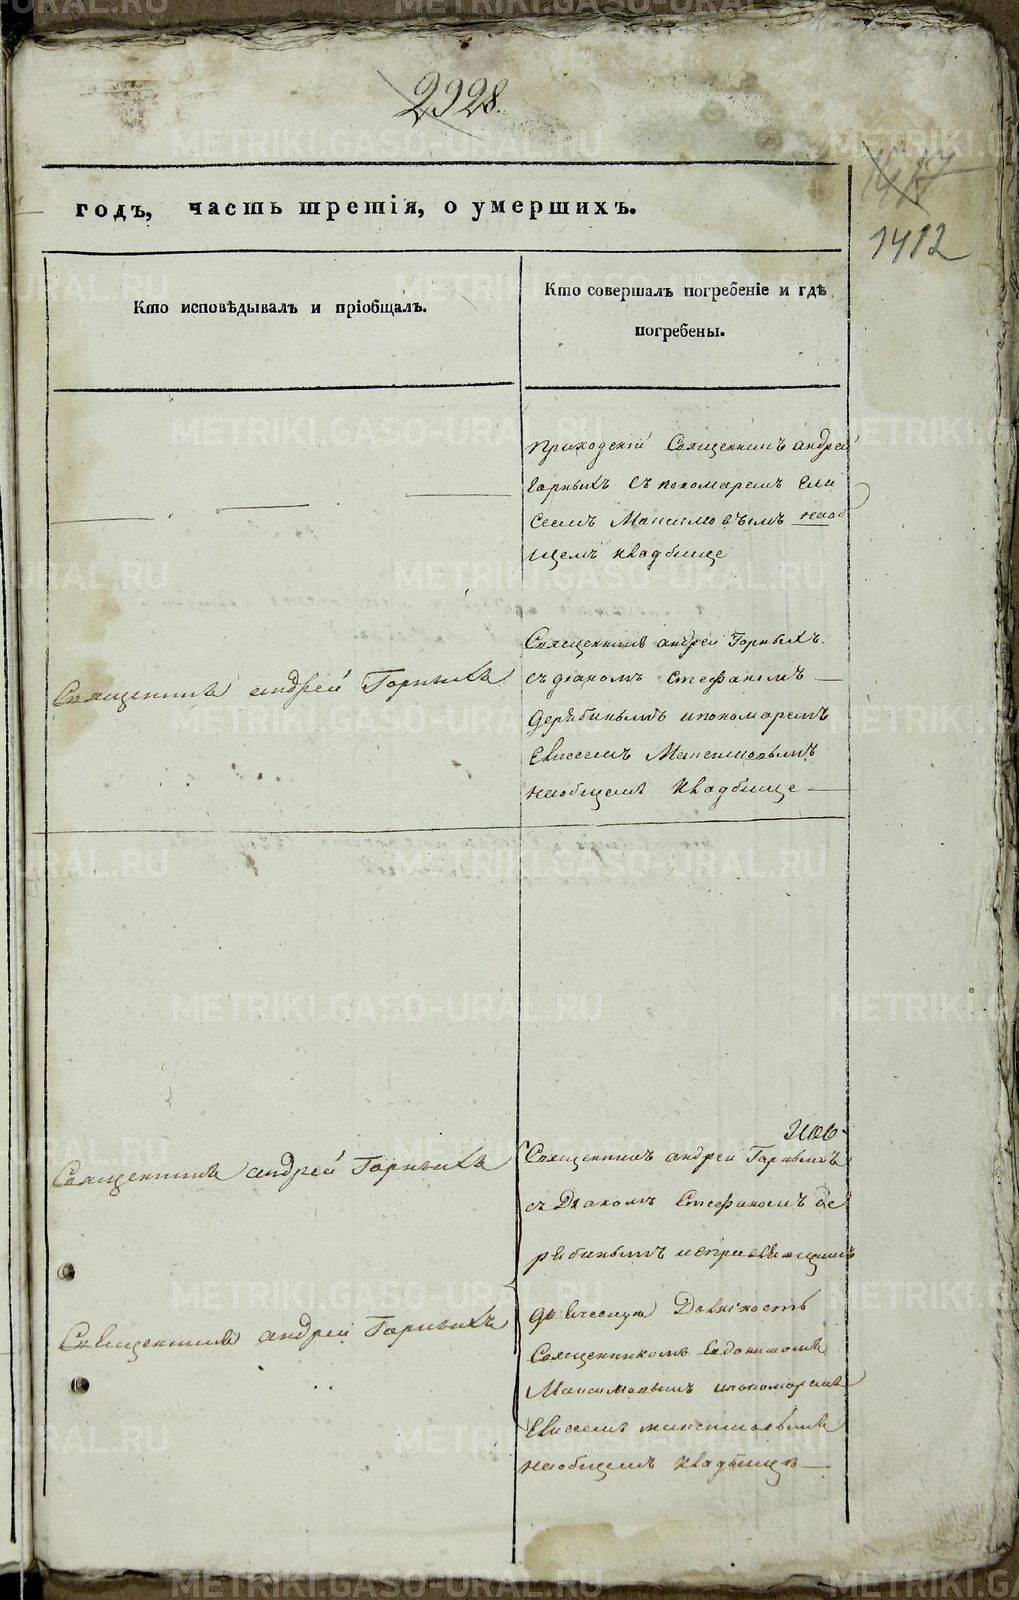 2928.
1412
годъ, часть третія, о умершихъ.
Кто исповѣдывалъ и пріобщалъ.
Кто совершалъ погребеніе и гдѣ
погребены.
приходскій Священникъ андрей
Горныхъ съ пономаремъ Ели
сеемъ Максимовымъ наоб
щемъ кладбище
Священникъ андрей Горныхъ
Священникъ андрей Горныхъ
съ діакомъ Стефаномъ
Дерябинымъ ипономаремъ
Елисеемъ Максимовымъ
наобщемъ кладбище
Священникъ андрей Горныхъ
Священникъ андрей Горныхъ
съ Діакомъ Стефаномъ Де
рябинымъ исправляющимъ
Священникъ андрей Горныхъ
дьяческую Должность
Священникомъ Евдокимомъ
Максимовымъ ипономаремъ
Елисеемъ максимовымъ
наобщемъ кладбище
METRIKI.GASO-URAL.RU